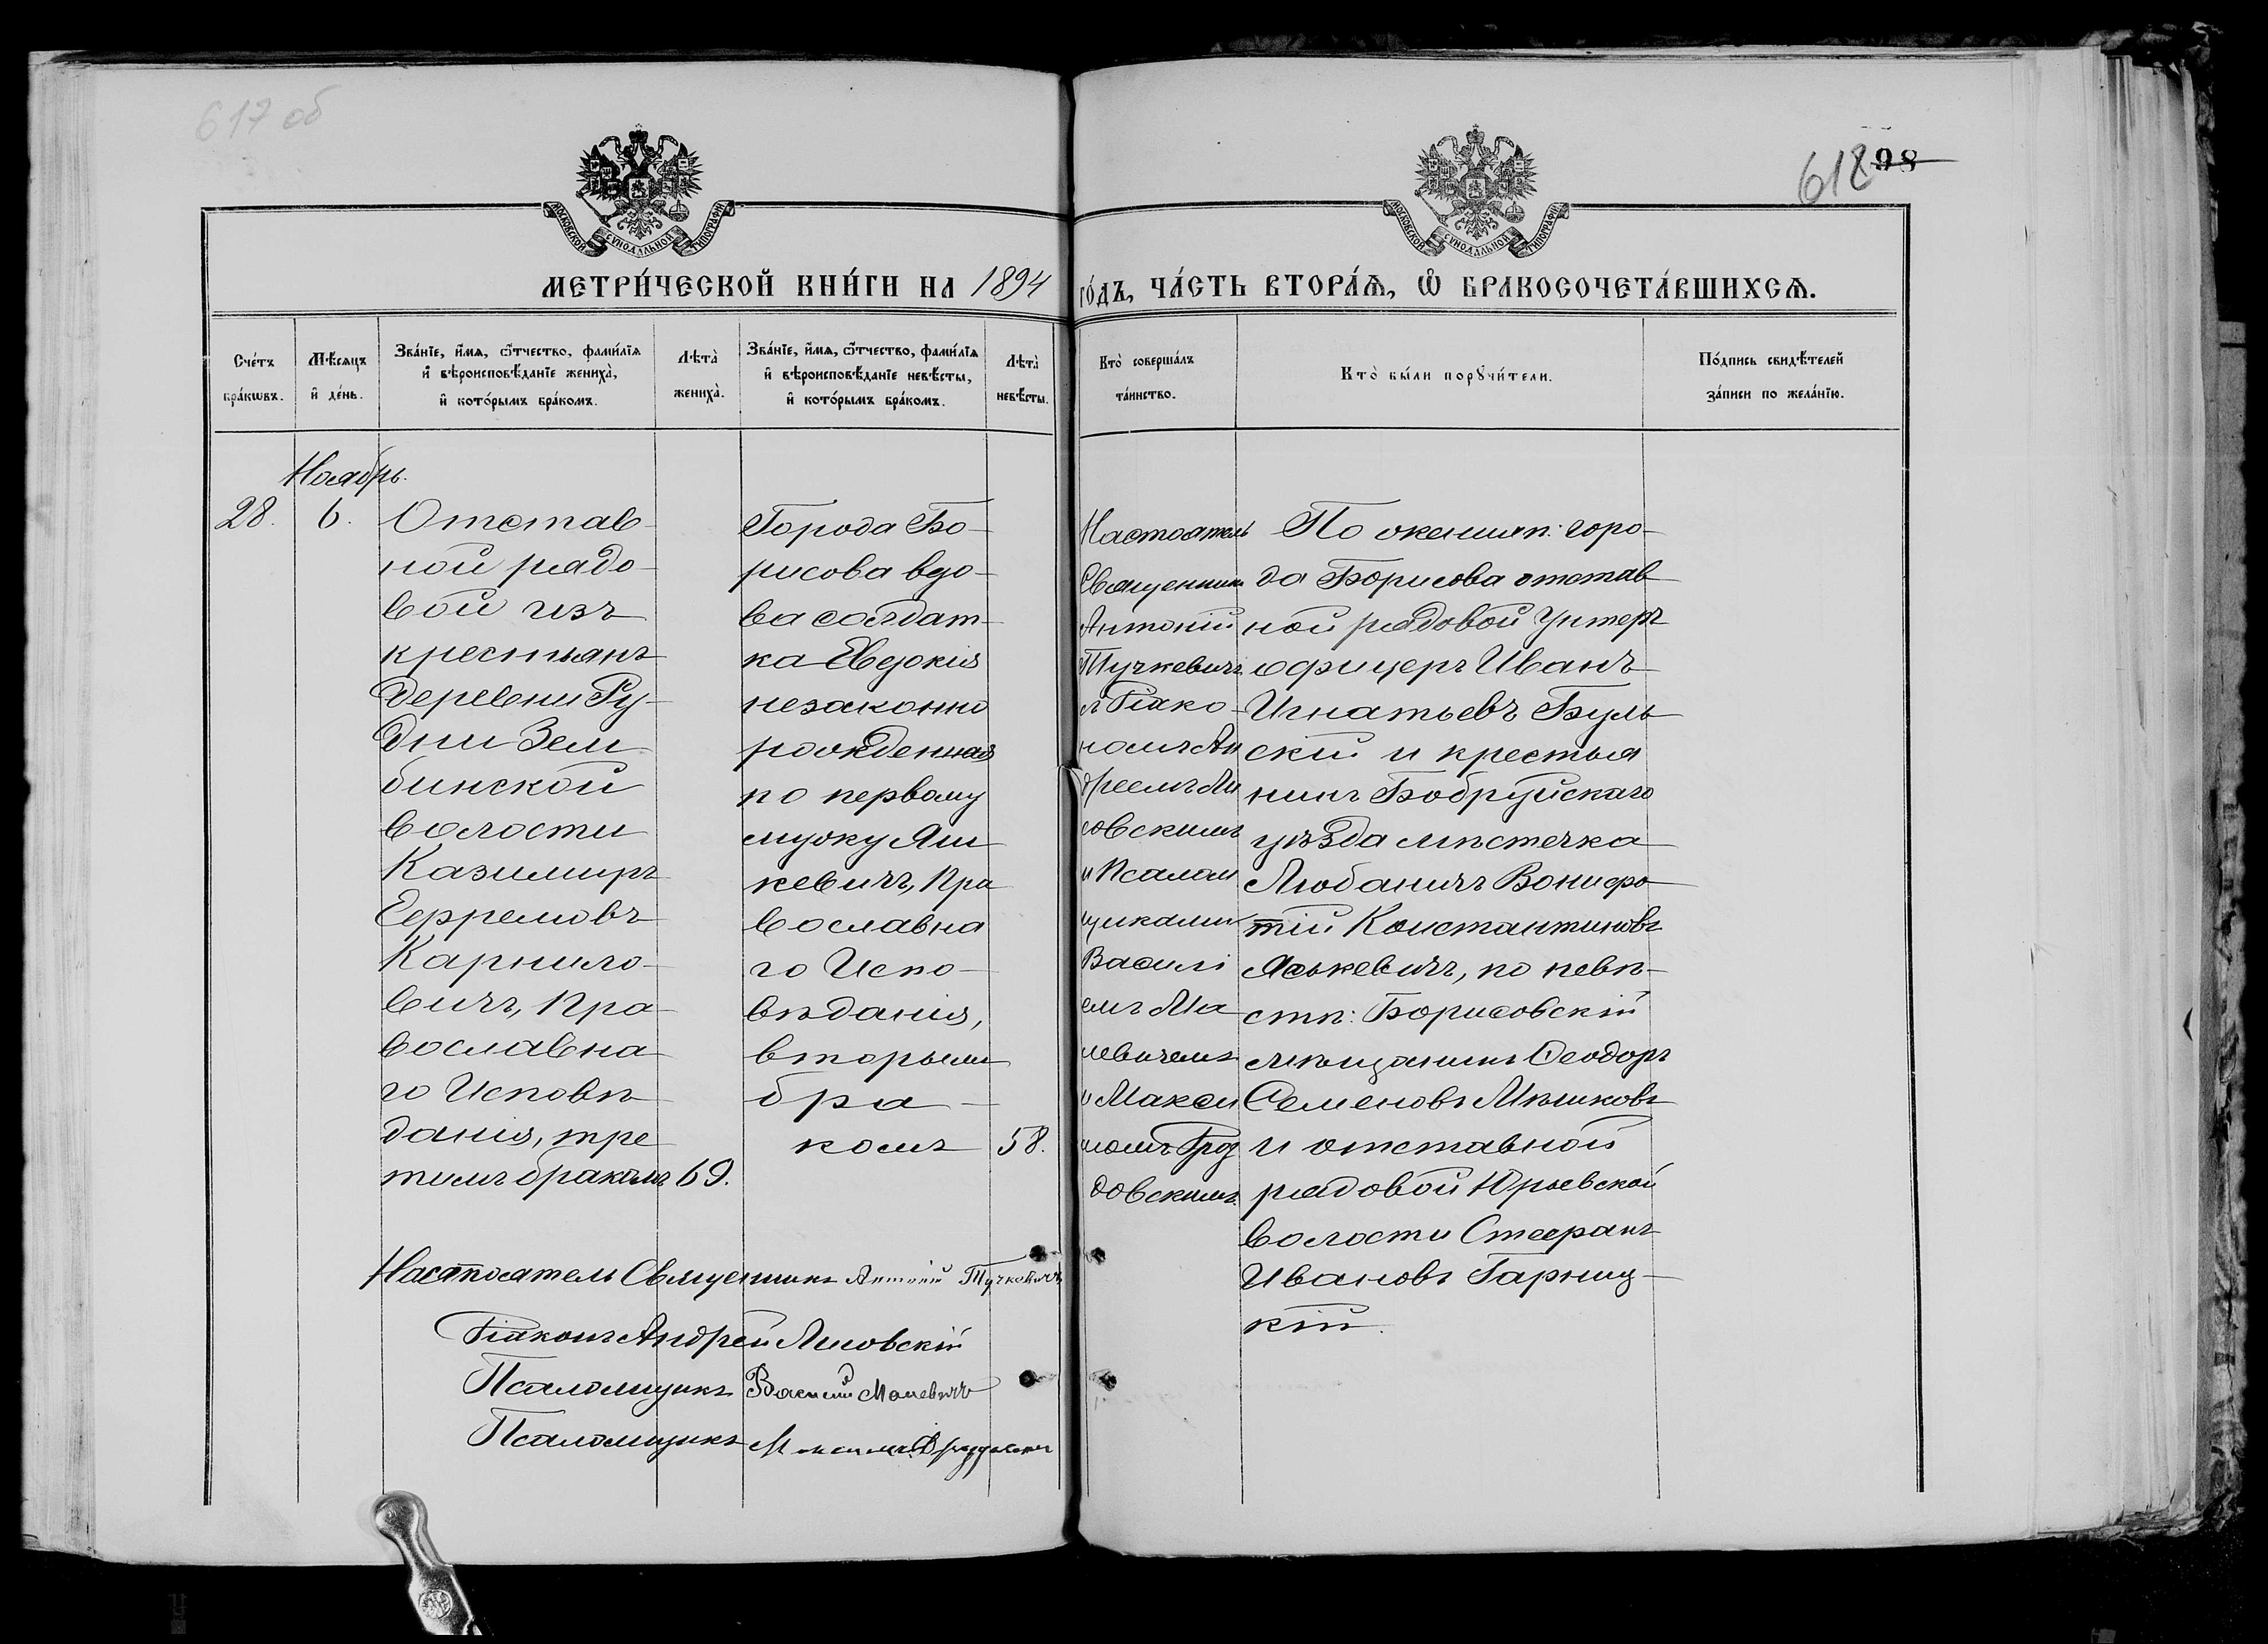 617 об
618 98
МОСКОВСКОЙ СѴНОДАЛЬНОЙ ТИПОГРАФІИ
МОСКОВСКОЙ СѴНОДАЛЬНОЙ ТИПОГРАФІИ
МЕТРИ́ЧЕСКОЙ КНИ́ГИ НА 1894 ГО́ДЪ, ЧА́СТЬ ВТОРА́Ѧ, Ѡ҆ БРАКОСОЧЕТА́ВШИХСѦ.
Сче́тъ
бра́кѡвъ.
Мѣ́сяцъ
и҆ де́нь.
Зва́нїе, и҆́мѧ, ѻ҆́тчество, фами́лїѧ
и҆ вѣроисповѣ́данїе жениха̀,
и҆ кото́рымъ бра́комъ.
Лѣта̀
жениха̀.
Зва́нїе, и҆́мѧ, ѻ҆́тчество, фами́лїѧ
и҆ вѣроисповѣ́данїе невѣ́сты,
и҆ кото́рымъ бра́комъ.
Лѣта̀
невѣ́сты.
Кто̀ соверша́лъ
та́инство.
Кто̀ бы́ли порꙋчи́тели.
По́дпись свидѣ́телей
за́писи по жела́нїю.
Ноябрь.
28. 6.
Отстав
ной рядо
вой изъ
крестьянъ
деревни Ру-
дни Зем
бинской
волости
Казимиръ
Ефремовъ
Карнило-
вичъ, Пра
вославна
го Исповѣ
данія, тре
тимъ бракомъ 69.
Города Бо-
рисова вдо-
ва солдат-
ка Евдокія
незаконно
рожденная
по первому
мужу Яш
кевичъ, Пра
вославна
го Испо-
вѣданія,
вторымъ
бра-
комъ 58.
Настоятель
Священникъ
Антоній
Тучкевичъ
съ Діако-
номъ Ан
дреемъ Ли
совскимъ
и Псалом
щиками
Василі
емъ Ма
невичемъ
и Макси
момъ Дроз
довскимъ.
По женихѣ: горо-
да Борисова отстав
ной рядовой Унтеръ
офицеръ Иванъ
Игнатьевъ Буль
скій и крестья
нинъ Бобруйскаго
уѣзда мѣстечка
Любаничъ Вонифа-
тій Константиновъ
Яськевичъ, по невѣ-
стѣ: Борисовскій
мѣщанинъ Ѳеодоръ
Семеновъ Мѣшковъ
и отставной
рядовой Юрьевской
волости Стефанъ
Ивановъ Гарниц-
кій.
Настоятель Священникъ Антоній Тучкевичъ
Діаконъ Андрей Лисовскій
Псаломщикъ Василій Маневичъ
Псаломщикъ Максимъ Дроздовскій